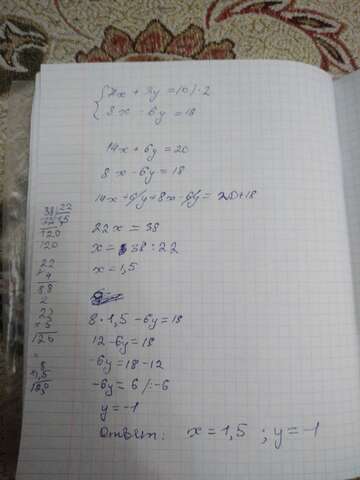 7x + 3y = 10 | · 2
8x - 6y = 18
14x + 6y = 20
8x - 6y = 18
14x + 6y + 8x - 6y = 20 + 18
22x = 38
x = 38 : 22
x = 1,5
8 · 1,5 - 6y = 18
12 - 6y = 18
-6y = 18 - 12
-6y = 6 | : -6
y = -1
Ответ: x = 1,5 ; y = -1
38 22
120
120
22
4
88
22
5
120
8
1,5